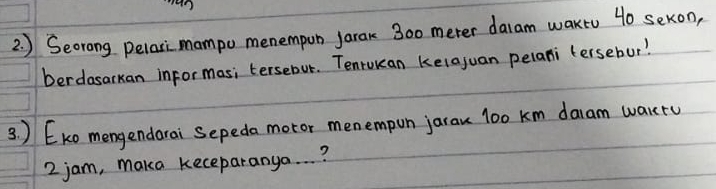 2.) Seorang pelari mampu menempuh jarak 300 meter dalam waktu 40 sekon,
berdasarkan informasi tersebut. Tentukan kelajuan pelari tersebut!
3.) Eko mengendarai sepeda motor menempuh jarak 100 km dalam waktu
2 jam, maka kecepatanya...?